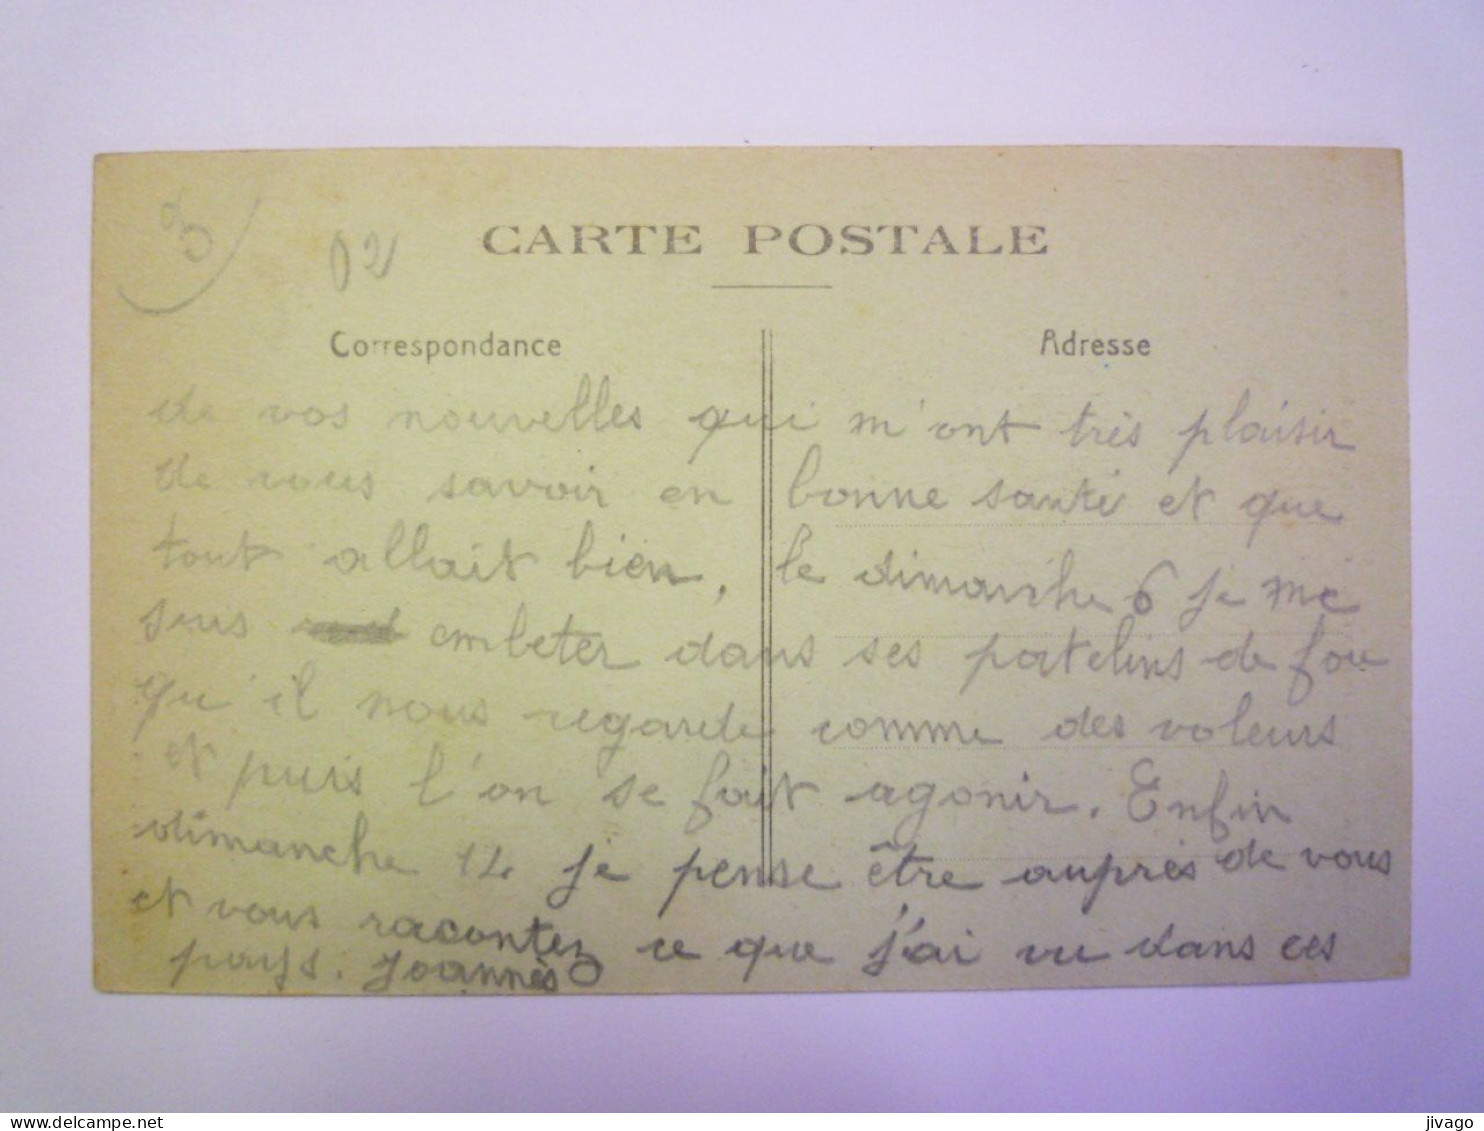 3
02
CARTE POSTALE
Correspondance
Adresse
de vos nouvelles qui m'ont très plaisir
de vous savoir en bonne santé et que
tout allait bien, le dimanche 6 je me
suis embeter dans ses patelins de fou
qu'il nous regarde comme des voleurs
et puis l'on se fait agonir. Enfin
dimanche 14 je pense être auprès de vous
et vous raconter ce que j'ai vu dans ces
pays. Joannès
jivago